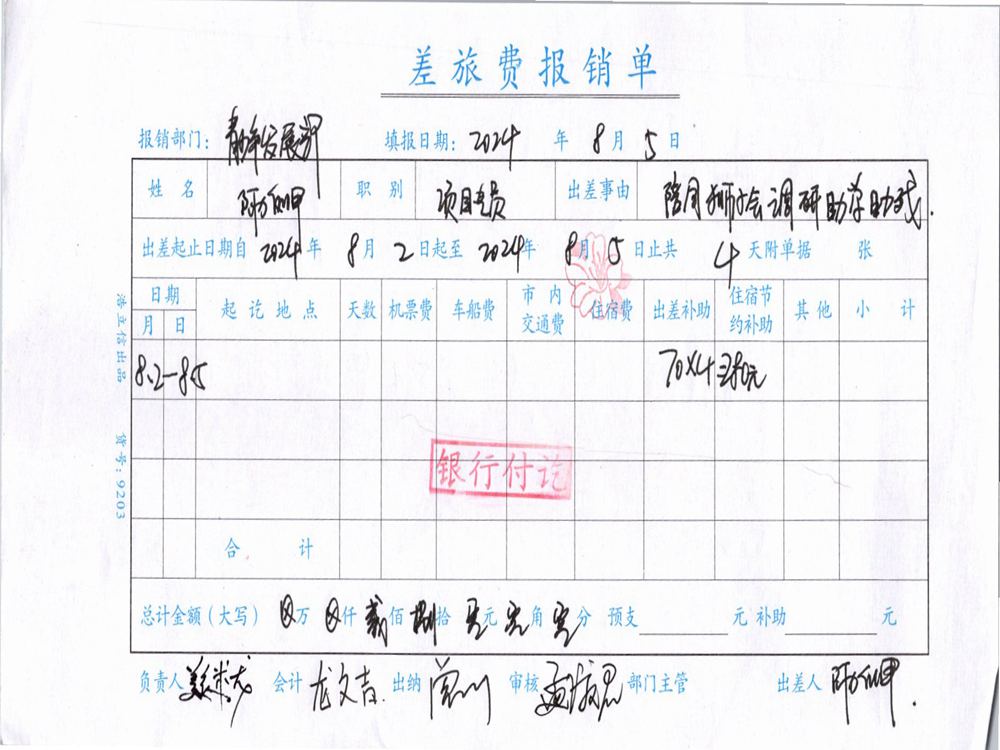 差旅费报销单
报销部门：青年发展部 填报日期：2024 年 8 月 5 日
姓名 职别 项目专员 出差事由 陪同狮子会调研助学助成.
出差起止日期自 2024 年 8 月 2 日起至 2024 年 8 月 5 日止共 4 天附单据 张
日期 起讫地点 天数 机票费 车船费 市内交通费 住宿费 出差补助 住宿节约补助 其他 小计
月 日
8.2-8.5 70×4=280元
银行付讫
合计
总计金额（大写） ⊗万 ⊗仟 贰佰 捌拾 零元 零角 零分 预支 元 补助 元
负责人 会计 龙文吉 出纳 审核 部门主管 出差人
浩立信出品 货号：9203